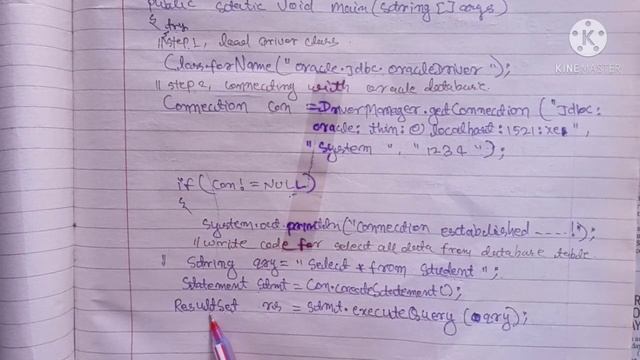 public static void main(string[]args)
{ try
K
KINEMASTER
// step 1, load driver class
Class.forName("oracle.jdbc.oracleDriver");
// step 2, connecting with oracle database.
Connection con = DriverManager.getConnection("Jdbc:
oracle:thin:@localhost:1521:xe",
"system", "1234");
if(Con!=NULL)
{
system.out.println("Connection established ----!");
// write code for select all data from database table
string qry = "select * from student";
Statement stmt = Con.createStatement();
ResultSet rs = stmt.executeQuery(qry);